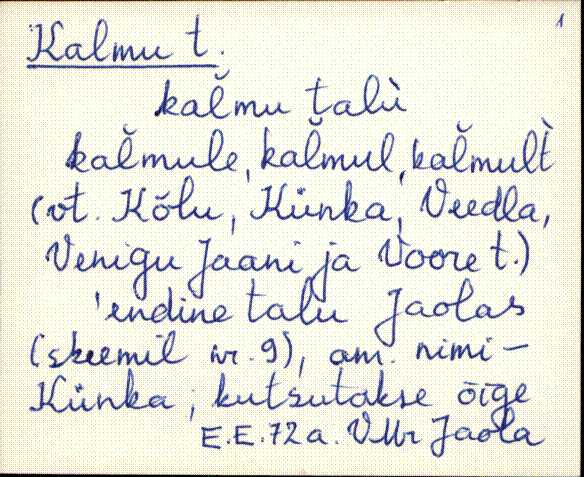 1
Kalmu t.
kal̆mu talù
kal̆mule, kal̆mul, kal̆mult̀
(vt. Kõlu, Künka, Veedla,
Venigu Jaani ja Voore t.)
'endine talu Jaolas
(skeemil nr. 9), am. nimi -
Künka; kutsutakse õīge
E.E. 72 a. VMr Jaola